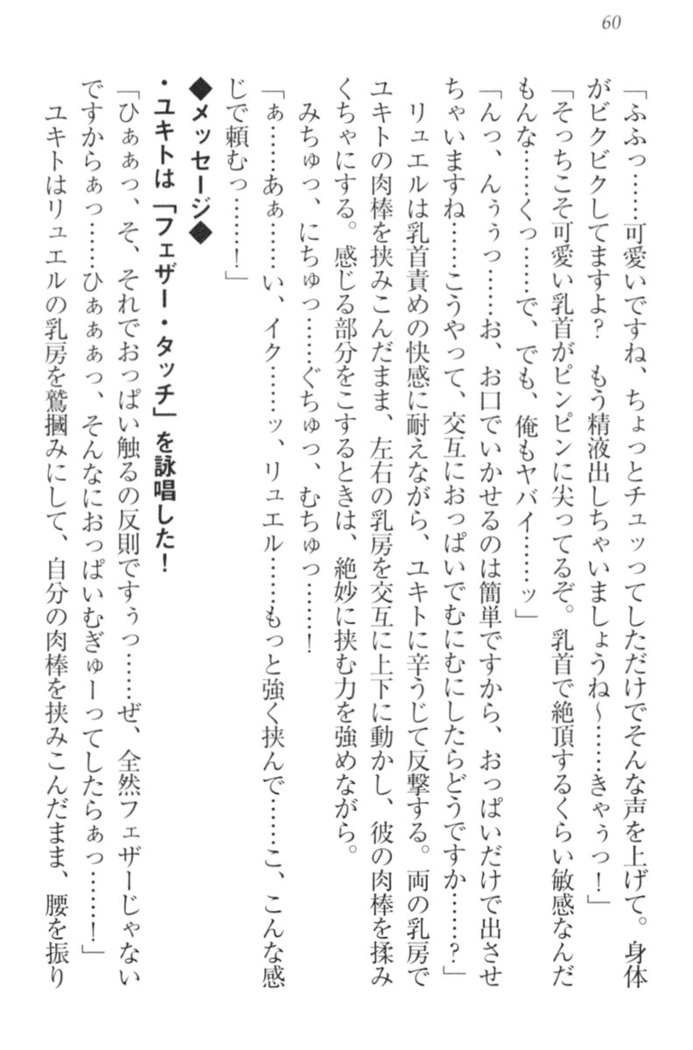 60
「ふふっ……可愛いですね、ちょっとチュッってしただけでそんな声を上げて。身体
がビクビクしてますよ？　もう精液出しちゃいましょうね～……きゃぅっ！」
「そっちこそ可愛い乳首がピンピンに尖ってるぞ。乳首で絶頂するくらい敏感なんだ
もんな……くっ……で、でも、俺もヤバイ……ッ」
「んっ、んぅぅっ……お、お口でいかせるのは簡単ですから、おっぱいだけで出させ
ちゃいますね……こうやって、交互におっぱいでむにむにしたらどうですか……？」
　リュエルは乳首責めの快感に耐えながら、ユキトに辛うじて反撃する。両の乳房で
ユキトの肉棒を挟みこんだまま、左右の乳房を交互に上下に動かし、彼の肉棒を揉み
くちゃにする。感じる部分をこするときは、絶妙に挟む力を強めながら。
　みちゅっ、にちゅっ……ぐちゅっ、むちゅっ……！
「ぁ……あぁ……い、イク……ッ、リュエル……もっと強く挟んで……こ、こんな感
じで頼むっ……！」
◆メッセージ◆
・ユキトは「フェザー・タッチ」を詠唱した！
「ひぁぁっ、そ、それでおっぱい触るの反則ですぅっ……ぜ、全然フェザーじゃない
ですからぁっ……ひぁぁぁっ、そんなにおっぱいむぎゅーってしたらぁっ……！」
　ユキトはリュエルの乳房を鷲摑みにして、自分の肉棒を挟みこんだまま、腰を振り